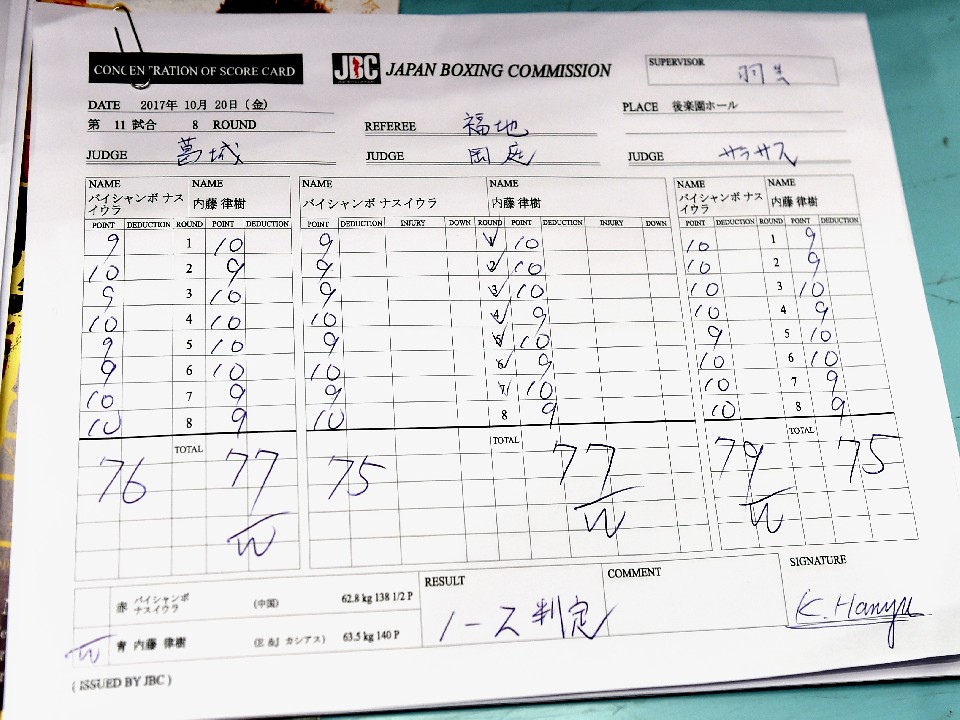 CONCENTRATION OF SCORE CARD
JBC JAPAN BOXING COMMISSION
SUPERVISOR 羽生
DATE 2017年 10月 20日（金）
PLACE 後楽園ホール
第 11 試合 8 ROUND
REFEREE 福地
JUDGE 葛城
JUDGE 岡庭
JUDGE サラサス
NAME NAME NAME NAME NAME NAME
バイシャンボ ナスイウラ 内藤 律樹 バイシャンボ ナスイウラ 内藤 律樹 バイシャンボ ナスイウラ 内藤 律樹
POINT DEDUCTION ROUND POINT DEDUCTION POINT DEDUCTION INJURY DOWN ROUND POINT DEDUCTION INJURY DOWN POINT DEDUCTION ROUND POINT DEDUCTION
9 1 10 9 1 10 10 1 9
10 2 9 9 2 10 10 2 9
9 3 10 9 3 10 10 3 10
10 4 10 10 4 9 10 4 9
9 5 10 9 5 10 9 5 10
9 6 10 10 6 9 10 6 10
10 7 9 9 7 10 10 7 9
10 8 9 10 8 9 10 8 9
TOTAL TOTAL TOTAL
76 77 75 77 79 75
W W W
赤 バイシャンボ ナスイウラ (中国) 62.8 kg 138 1/2 P
W 青 内藤 律樹 (E &J カシアス) 63.5 kg 140 P
RESULT
1-2 判定
COMMENT
SIGNATURE
K. Hanyu
( ISSUED BY JBC )